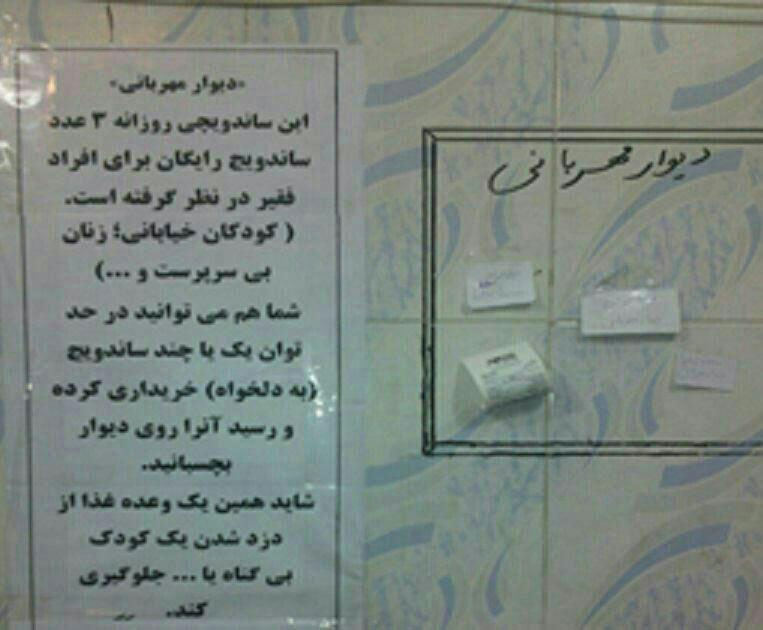 «دیوار مهربانی»
این ساندویچی روزانه ۳ عدد
ساندویچ رایگان برای افراد
فقیر در نظر گرفته است.
( کودکان خیابانی؛ زنان
بی سرپرست و ...)
شما هم می توانید در حد
توان یک یا چند ساندویچ
(به دلخواه) خریداری کرده
و رسید آنرا روی دیوار
بچسبانید.
شاید همین یک وعده غذا از
دزد شدن یک کودک
بی گناه یا ... جلوگیری
کند.
دیوار مهربانی